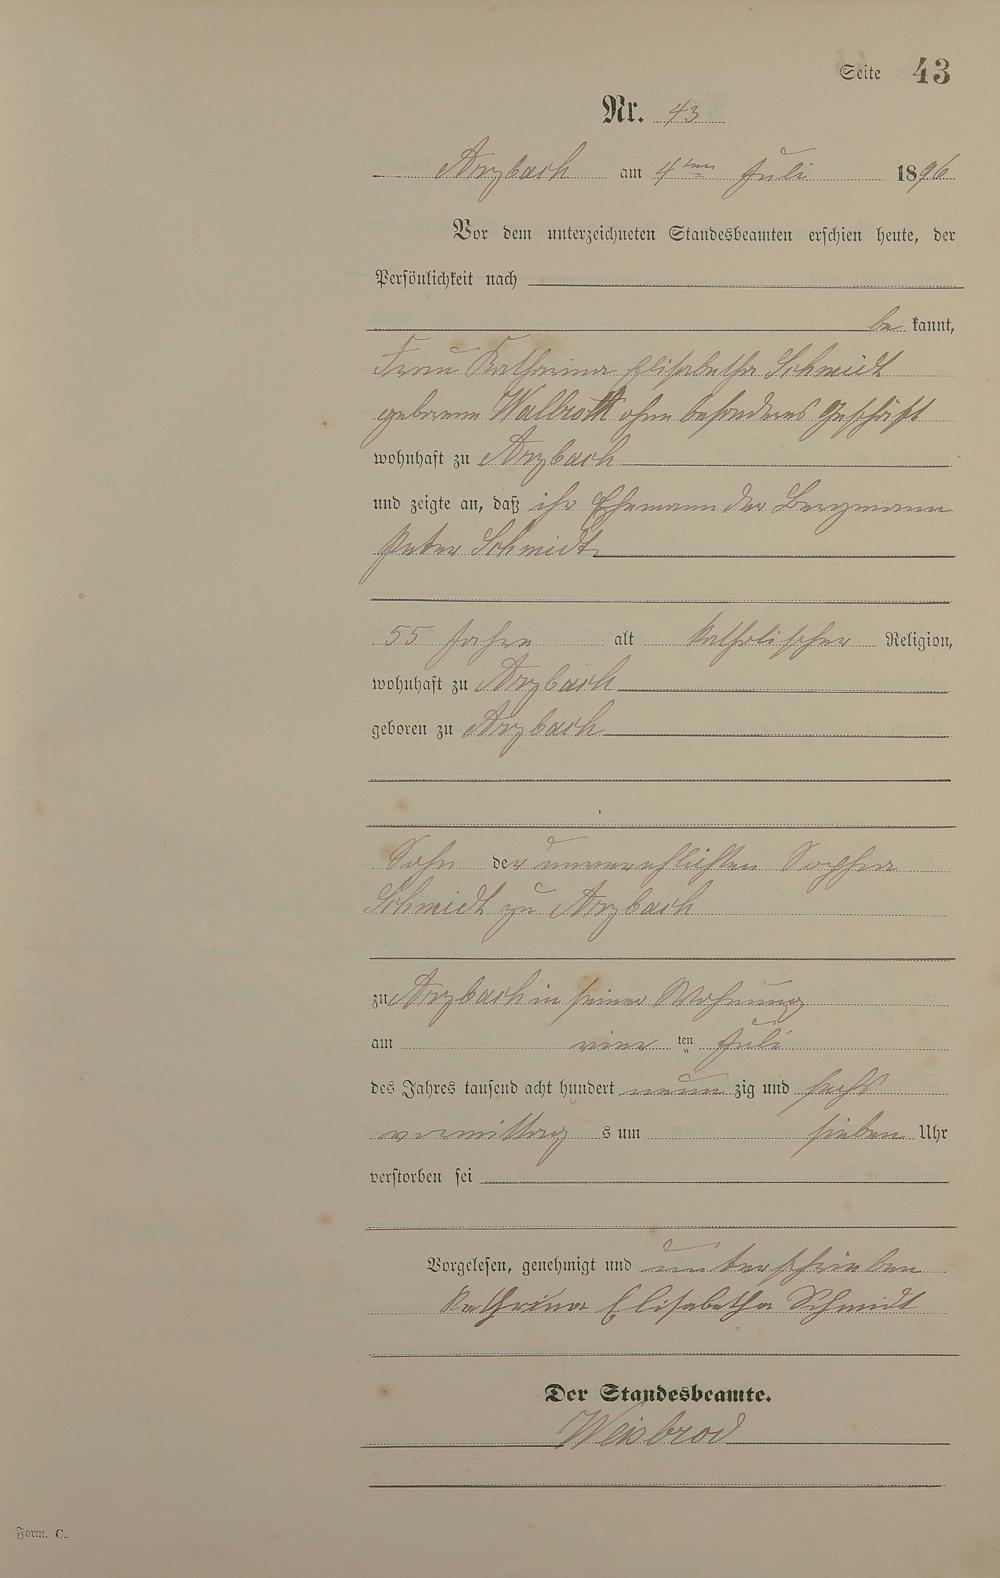 Seite 43
Nr. 43
Arzbach am 4ten Juli 1896
Vor dem unterzeichneten Standesbeamten erschien heute, der
Persönlichkeit nach
be kannt,
Frau Katharina Elisabetha Schmidt
geborene Walbroth ohne besonderes Geschäft
wohnhaft zu Arzbach
und zeigte an, daß ihr Ehemann der Bergmann
Peter Schmidt
55 Jahre alt katholischer Religion,
wohnhaft zu Arzbach
geboren zu Arzbach
Sohn der unverehlichten Sophia
Schmidt zu Arzbach
zu Arzbach in seiner Wohnung
am vier ten Juli
des Jahres tausend acht hundert neun zig und sechs
vormittag s um sieben Uhr
verstorben sei
Vorgelesen, genehmigt und unterschrieben
Kathrina Elisabetha Schmidt
Der Standesbeamte.
Weisbrod
Form. C.